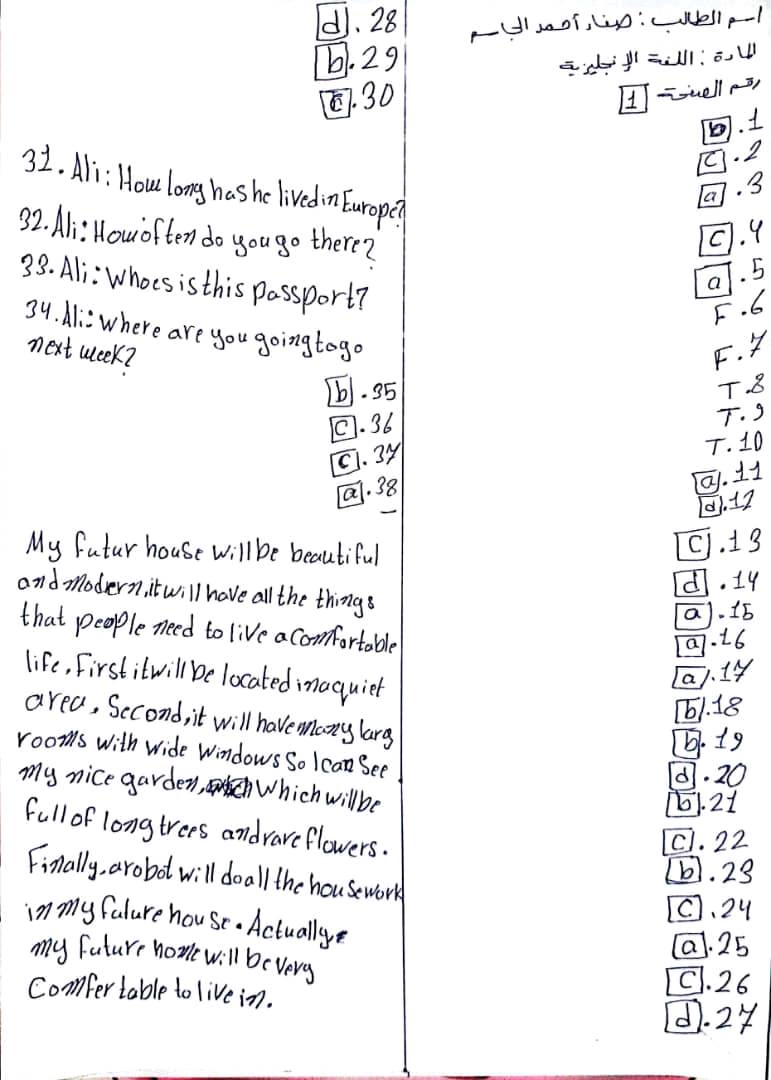 اسم الطالب : صفاء أحمد الجاسم
المادة : اللغة الإنجليزية
رقم الصفحة 1
b .1
c .2
a .3
c .4
a .5
F .6
F .7
T .8
T .9
T .10
a .11
d .12
c .13
d .14
a .15
a .16
a .17
b .18
b .19
d .20
b .21
c .22
b .23
c .24
a .25
c .26
d .27
d .28
b .29
c .30
31. Ali : How long has he lived in Europe?
32. Ali : How often do you go there?
33. Ali : Whoes is this passport?
34. Ali : where are you going to go
next week?
b .35
c .36
c .37
a .38
My futur house will be beautiful
and modern, it will have all the things
that people need to live a comfortable
life. First it will be located in a quiet
area, Second, it will have many larg
rooms with wide windows So I can See
my nice garden, which will be
full of long trees and rare flowers.
Finally, a robot will do all the housework
in my future house. Actually,
my future home will be very
Comfer table to live in.